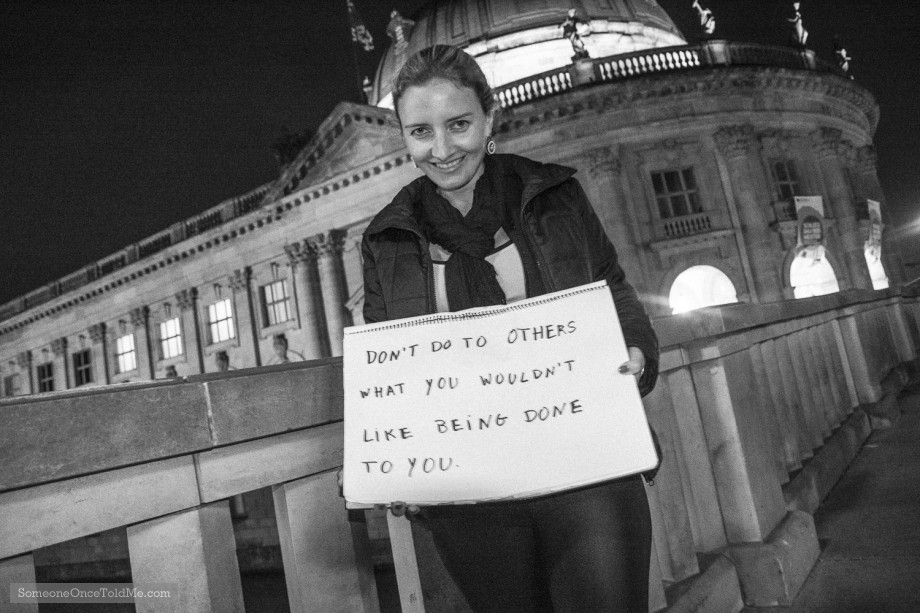 DON'T DO TO OTHERS
WHAT YOU WOULDN'T
LIKE BEING DONE
TO YOU.
SomeoneOnceToldMe.com